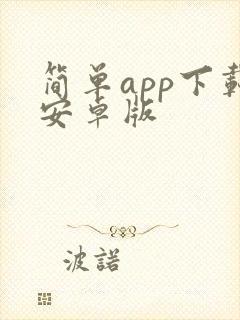 简单app下载
安卓版
波諾